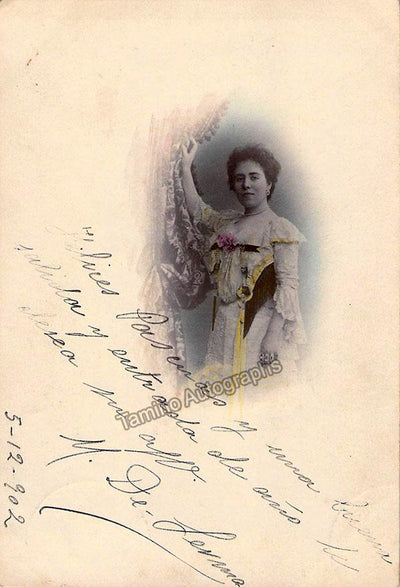 Felices Pascuas y una buena
salida y entrada de año le
desea su affo.
M. De-Lerma
5-12-902
Tamino Autographs